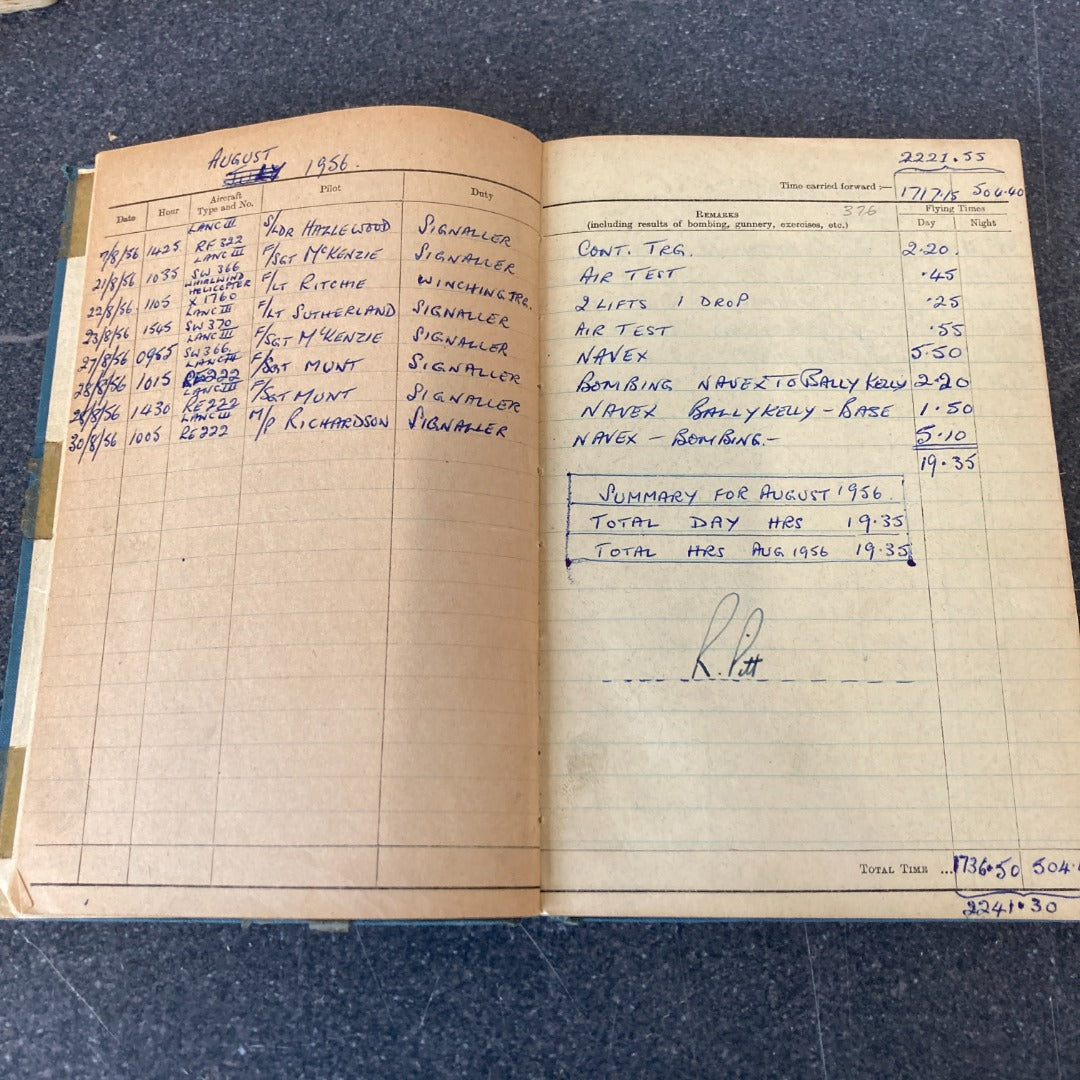 AUGUST
July 1956.
Date Hour Aircraft Type and No. Pilot Duty
7/8/56 1425 LANC III RF 322 S/LDR HAZLEWOOD SIGNALLER
21/8/56 1035 LANC III SW 366 F/SGT McKENZIE SIGNALLER
22/8/56 1105 WHIRLWIND HELICOPTER X 1760 F/LT RITCHIE WINCHING TRG.
23/8/56 1545 LANC III SW 370 F/LT SUTHERLAND SIGNALLER
27/8/56 0955 LANC III SW 366 F/SGT McKENZIE SIGNALLER
28/8/56 1015 LANC III RE222 F/SGT MUNT SIGNALLER
28/8/56 1430 LANC III RE222 F/SGT MUNT SIGNALLER
30/8/56 1005 LANC III RE222 M/P RICHARDSON SIGNALLER
2221.55
Time carried forward :— 1717.15 504.40
REMARKS 376 Flying Times
(including results of bombing, gunnery, exercises, etc.) Day Night
CONT. TRG. 2.20.
AIR TEST .45
2 LIFTS 1 DROP .25
AIR TEST .55
NAVEX 5.50
BOMBING NAVEX TO BALLY KELLY 2.20
NAVEX BALLYKELLY - BASE 1.50
NAVEX - BOMBING.- 5.10
19.35
SUMMARY FOR AUGUST 1956.
TOTAL DAY HRS 19.35
TOTAL HRS AUG 1956 19.35
R. Pitt
TOTAL TIME ... 1736.50 504.
2241.30